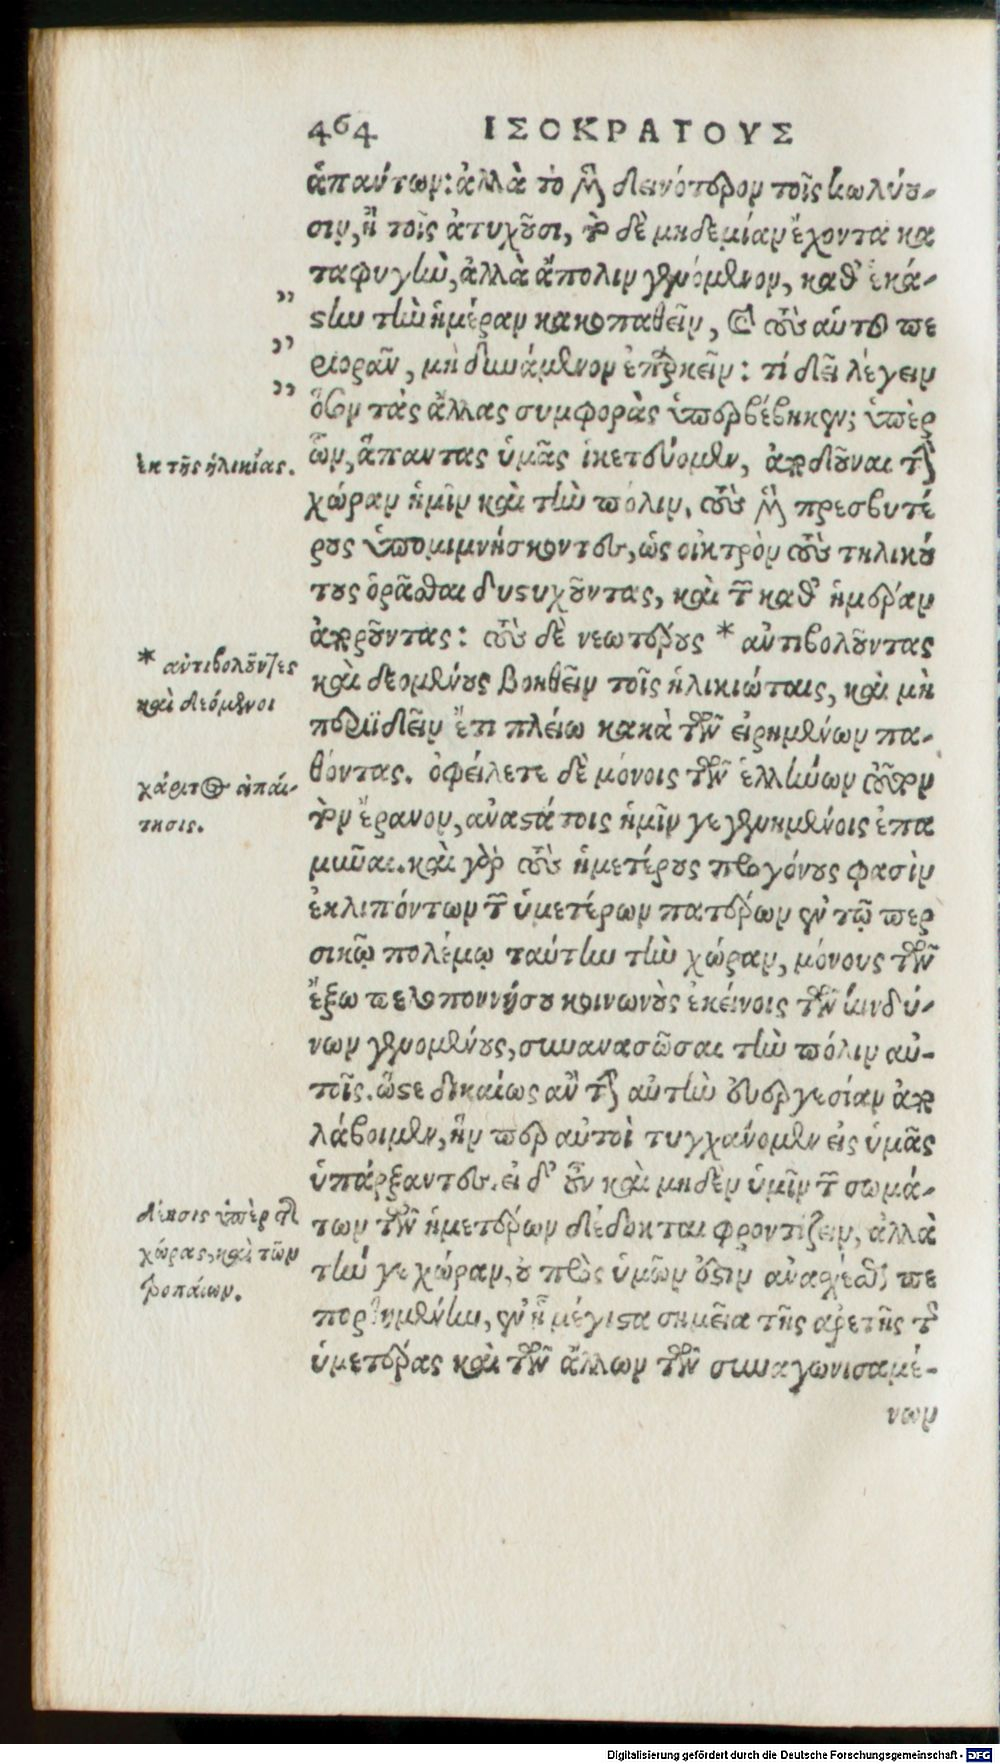 464 ΙΣΟΚΡΑΤΟΥΣ
ἁπάντων: ἀλλὰ τὸ μὲν δεινότερον τοῖς κωλύου-
σιν, ἢ τοῖς ἀτυχοῦσι, τὸ δὲ μηδεμίαν ἔχοντα κα
ταφυγὴν, ἀλλὰ ἄπολιν γενόμενον, καθ' ἑκά-
στην τὴν ἡμέραν κακοπαθεῖν, καὶ τοὺς αὑτοῦ πε
ριορᾶν, μὴ δυνάμενον ἐπαρκεῖν: τί δεῖ λέγειν
ὅσον τὰς ἄλλας συμφορὰς ὑπερβέβηκεν; ὑπὲρ
ὧν, ἅπαντας ὑμᾶς ἱκετεύομεν, ἀποδοῦναι τὴν
χώραν ἡμῖν καὶ τὴν πόλιν, τοὺς μὲν πρεσβυτέ
ρους ὑπομιμνήσκοντες, ὡς οἰκτρὸν τοὺς τηλικού
τους ὁρᾶσθαι δυστυχοῦντας, καὶ τῶν καθ' ἡμέραν
ἀποροῦντας: τοὺς δὲ νεωτέρους * ἀντιβολοῦντας
καὶ δεομένους βοηθεῖν τοῖς ἡλικιώταις, καὶ μὴ
περιϊδεῖν ἔτι πλείω κακὰ τῶν εἰρημένων πα-
θόντας. ὀφείλετε δὲ μόνοις τῶν ἑλλήνων τοῦτον
τὸν ἔρανον, ἀναστάτοις ἡμῖν γεγενημένοις ἐπα
μῦναι. καὶ γὰρ τοὺς ἡμετέρους προγόνους φασὶν
ἐκλιπόντων τῶν ὑμετέρων πατέρων ἐν τῷ περ
σικῷ πολέμῳ ταύτην τὴν χώραν, μόνους τῶν
ἔξω πελοποννήσου κοινωνοὺς ἐκείνοις τῶν κινδύ-
νων γενομένους, συνανασῶσαι τὴν πόλιν αὐ-
τοῖς. ὥστε δικαίως ἂν τὴν αὐτὴν εὐεργεσίαν ἀπο
λάβοιμεν, ἥν περ αὐτοὶ τυγχάνομεν εἰς ὑμᾶς
ὑπάρξαντες. εἰ δ' οὖν καὶ μηδὲν ὑμῖν τῶν σωμά-
των τῶν ἡμετέρων δέδοκται φροντίζειν, ἀλλὰ
τήν γε χώραν, οὐ πρὸς ὑμῶν ἐστιν ἀνασχέσθαι πε
πορθημένην, ἐν ᾗ μέγιστα σημεῖα τῆς ἀρετῆς τῆς
ὑμετέρας καὶ τῶν ἄλλων τῶν συναγωνισαμέ-
νων
”
”
”
Ἐκ τῆς ἡλικίας.
* ἀντιβολοῦντες
καὶ δεόμενοι
χάριτος ἀπαί-
τησις.
δέησις ὑπὲρ τῆς
χώρας, καὶ τῶν
τροπαίων.
Digitalisierung gefördert durch die Deutsche Forschungsgemeinschaft - DFG